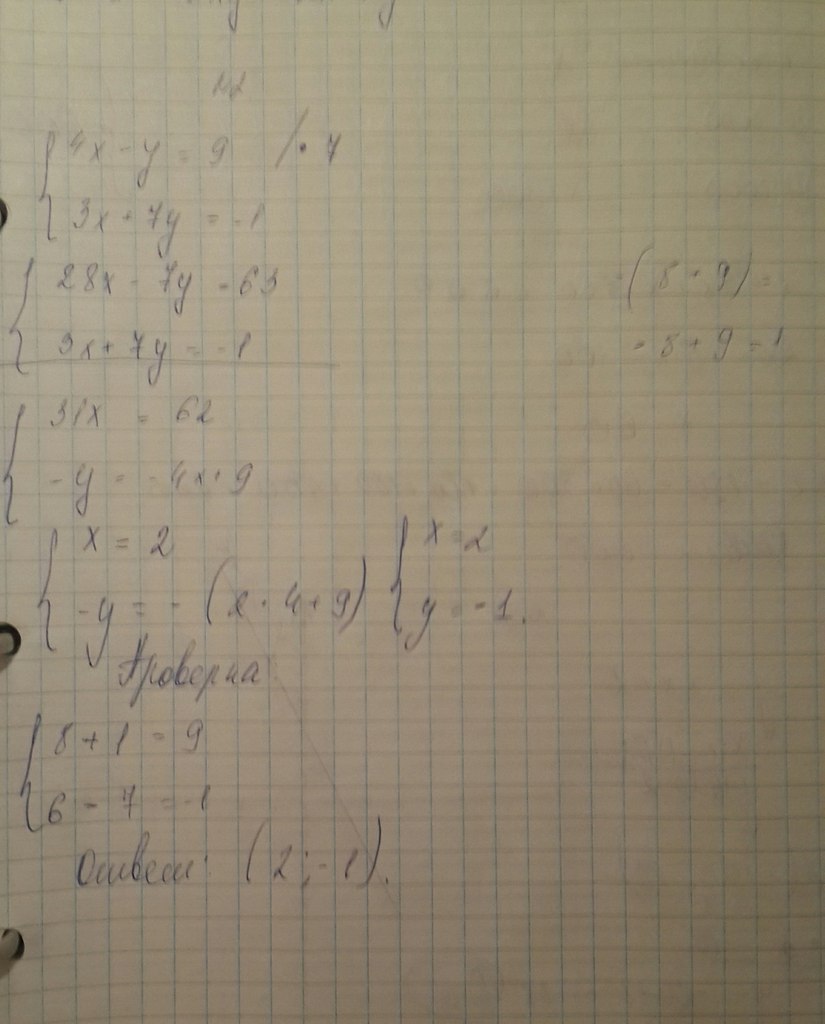 №2
{ 4x - y = 9 /· 7
3x + 7y = -1
{ 28x - 7y = 63
3x + 7y = -1
-(8 - 9) =
- 8 + 9 = 1
{ 31x = 62
-y = -4x + 9
{ x = 2
-y = - (2 · 4 + 9)
{ x = 2
y = -1.
Проверка
{ 8 + 1 = 9
6 - 7 = -1
Ответ: (2; -1).